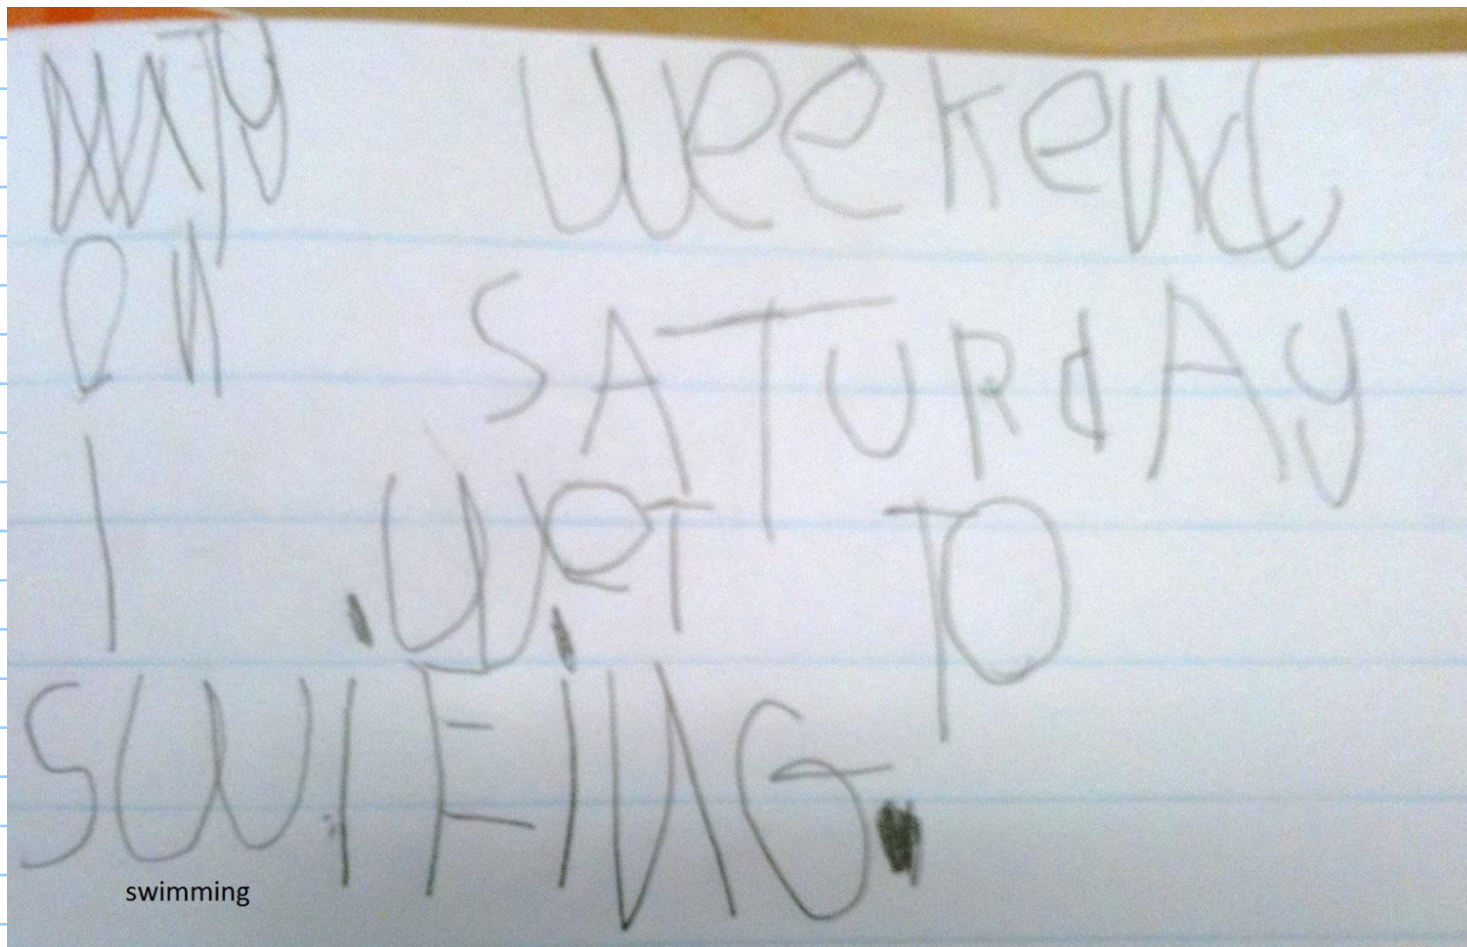 My Weekend
ON SATURdAy
I .WeT TO
SWIFING.
swimming